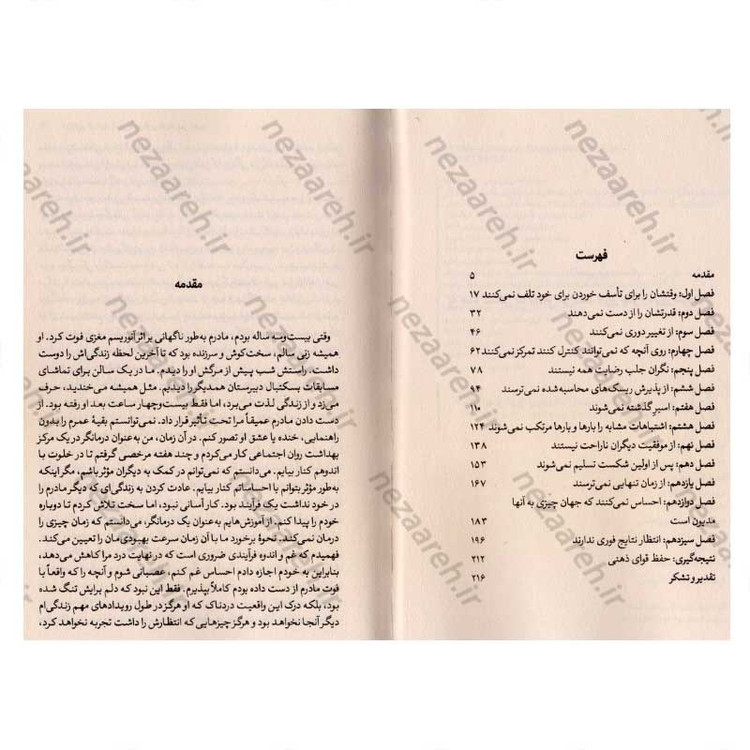 فهرست
مقدمه ۵
فصل اول: وقتشان را برای تأسف خوردن برای خود تلف نمی‌کنند ۱۷
فصل دوم: قدرتشان را از دست نمی‌دهند ۳۲
فصل سوم: از تغییر دوری نمی‌کنند ۴۶
فصل چهارم: روی آنچه که نمی‌توانند کنترل کنند تمرکز نمی‌کنند ۶۲
فصل پنجم: نگران جلب رضایت همه نیستند ۷۸
فصل ششم: از پذیرش ریسک‌های محاسبه‌شده نمی‌ترسند ۹۴
فصل هفتم: اسیر گذشته نمی‌شوند ۱۱۰
فصل هشتم: اشتباهات مشابه را بارها و بارها مرتکب نمی‌شوند ۱۲۴
فصل نهم: از موفقیت دیگران ناراحت نیستند ۱۳۸
فصل دهم: پس از اولین شکست تسلیم نمی‌شوند ۱۵۳
فصل یازدهم: از زمان تنهایی نمی‌ترسند ۱۶۷
فصل دوازدهم: احساس نمی‌کنند که جهان چیزی به آنها
مدیون است ۱۸۳
فصل سیزدهم: انتظار نتایج فوری ندارند ۱۹۶
نتیجه‌گیری: حفظ قوای ذهنی ۲۱۲
تقدیر و تشکر ۲۱۶
مقدمه
وقتی بیست‌وسه ساله بودم، مادرم به‌طور ناگهانی بر اثر آنوریسم مغزی فوت کرد. او
همیشه زنی سالم، سخت‌کوش و سرزنده بود که تا آخرین لحظه زندگی‌اش را دوست
داشت. راستش شب پیش از مرگش او را دیدم. ما در یک سالن برای تماشای
مسابقات بسکتبال دبیرستان همدیگر را دیدیم. مثل همیشه می‌خندید، حرف
می‌زد و از زندگی لذت می‌برد، اما فقط بیست‌وچهار ساعت بعد او رفته بود. از
دست دادن مادرم عمیقاً مرا تحت تأثیر قرار داد. نمی‌توانستم بقیهٔ عمرم را بدون
راهنمایی، خنده یا عشق او تصور کنم. در آن زمان، من به‌عنوان درمانگر در یک مرکز
بهداشت روان اجتماعی کار می‌کردم و چند هفته مرخصی گرفتم تا در خلوت با
اندوهم کنار بیایم. می‌دانستم که نمی‌توانم در کمک به دیگران مؤثر باشم، مگر اینکه
به‌طور مؤثر بتوانم با احساساتم کنار بیایم. عادت کردن به زندگی‌ای که دیگر مادرم را
در خود نداشت یک فرآیند بود. کار آسانی نبود، اما سخت تلاش کردم تا دوباره
خودم را پیدا کنم. از آموزش‌هایم به‌عنوان یک درمانگر، می‌دانستم که زمان چیزی را
درمان نمی‌کند. نحوهٔ برخورد ما با آن زمان سرعت بهبودی‌مان را تعیین می‌کند.
فهمیدم که غم و اندوه فرآیندی ضروری است که در نهایت درد مرا کاهش می‌دهد،
بنابراین به خودم اجازه دادم احساس غم کنم، عصبانی شوم و آنچه را که واقعاً با
فوت مادرم از دست داده بودم کاملاً بپذیرم. فقط این نبود که دلم برایش تنگ شده
بود، بلکه درک این واقعیت دردناک که او هرگز در طول رویدادهای مهم زندگی‌ام
دیگر آنجا نخواهد بود و هرگز چیزهایی که انتظارش را داشت تجربه نخواهد کرد،
nezaareh.ir
nezaareh.ir
nezaareh.ir
nezaareh.ir
nezaareh.ir
nezaareh.ir
nezaareh.ir